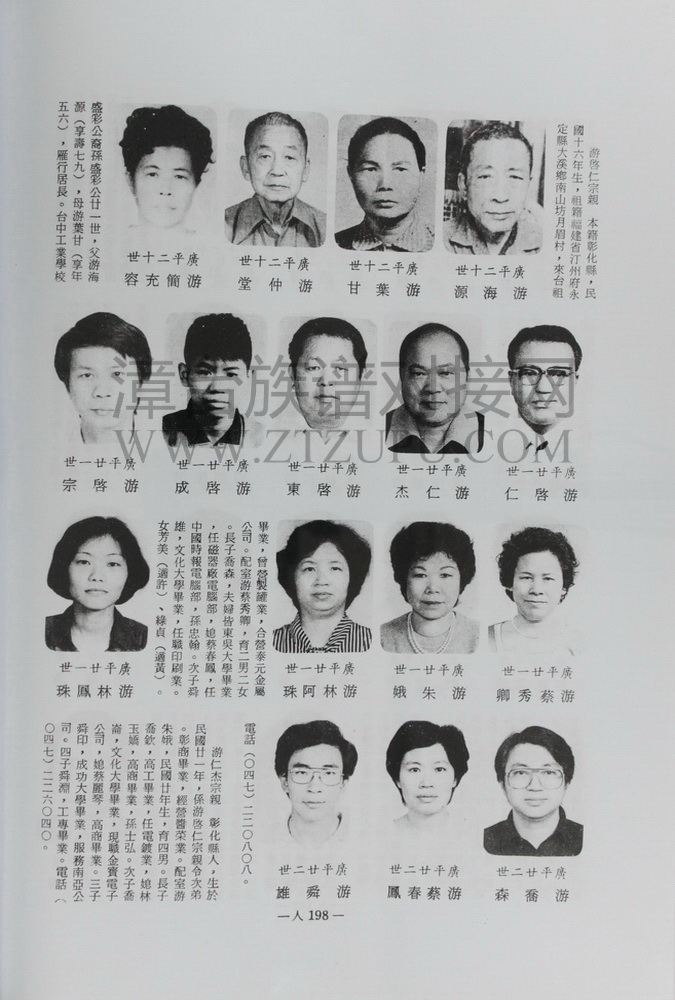 游啓仁宗親　本籍彰化縣，民
國十六年生，祖籍福建省汀州府永
定縣大溪鄉南山坊月眉村，來台祖
世十二平廣
源海游
世十二平廣
甘葉游
世十二平廣
堂仲游
世十二平廣
容充簡游
盛彩公裔孫盛彩公廿一世，父游海
源（享壽七九），母游葉甘（享年
五六），雁行居長。台中工業學校
世一廿平廣
仁啓游
世一廿平廣
杰仁游
世一廿平廣
東啓游
世一廿平廣
成啓游
世一廿平廣
宗啓游
漳台族谱对接网
WWW.ZTZUPU.COM
世一廿平廣
卿秀蔡游
世一廿平廣
娥朱游
世一廿平廣
珠阿林游
畢業，曾營製罐業，合營泰元金屬
公司。配室游蔡秀卿，育二男二女
。長子喬森，夫婦皆東吳大學畢業
，任磁器廠電腦部，媳蔡春鳳，任
中國時報電腦部，孫忠翰。次子舜
雄，文化大學畢業，任職印刷業。
女芳美（適許）、綠貞（適黃）。
世一廿平廣
珠鳳林游
世二廿平廣
森喬游
世二廿平廣
鳳春蔡游
世二廿平廣
雄舜游
電話（〇四七）二二〇八〇八。
游仁杰宗親　彰化縣人，生於
民國廿一年，係游啓仁宗親令次弟
。彰商畢業，經營醬菜業。配室游
朱娥，民國廿年生，育四男。長子
喬欽，高工畢業，任電鍍業，媳林
玉嬌，高商畢業，孫士弘。次子喬
崙，文化大學畢業，現職金寶電子
公司，媳蔡麗琴，高商畢業。三子
舜印，成功大學畢業，服務南亞公
司。四子舜淵，工專畢業。電話（
〇四七）二二六〇四〇。
—人 198—